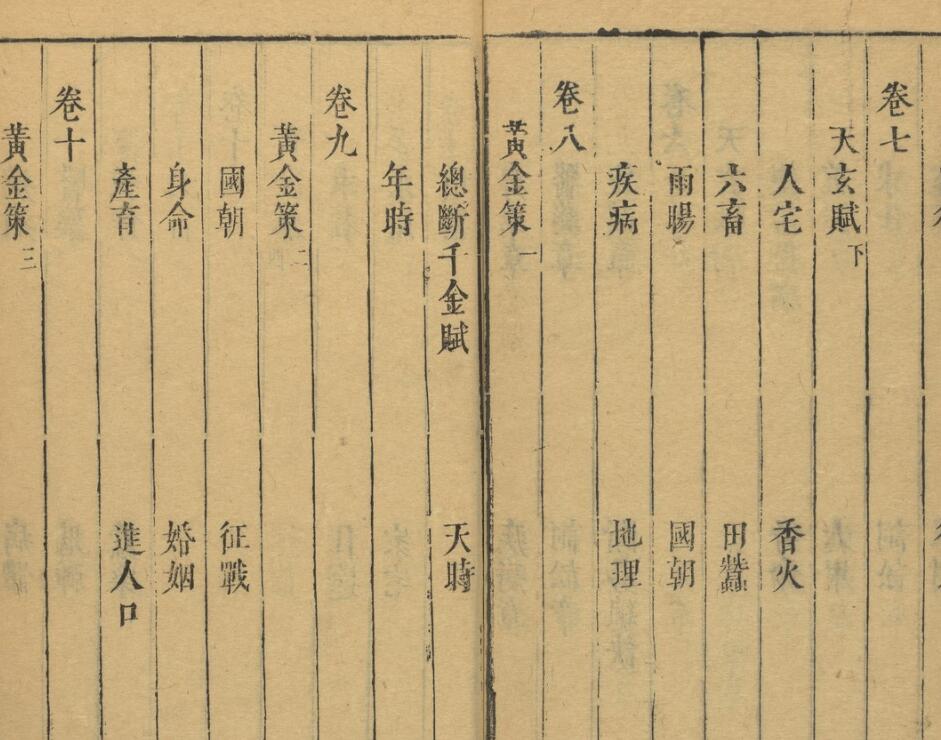 卷七
天玄賦下
人宅 香火
六畜 田蠶
雨暘 國朝
疾病 地理
卷八
黃金策一
總斷千金賦 天時
年時
卷九
黃金策二
國朝 征戰
身命 婚姻
產育 進人口
卷十
黃金策三